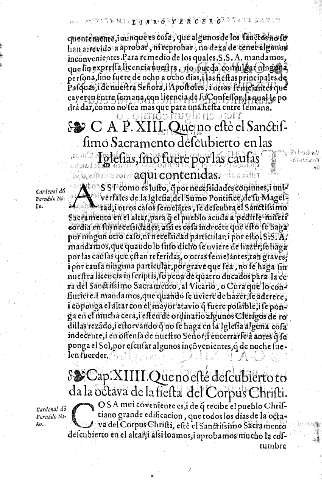 LIBRO TERCERO
quentemente, i aunque es cosa, que algunos de los sanctos no se
han atrevido a aprobar, ni reprobar, no dexa de tener algunos
inconvenientes. Para remedio de los quales, S.S.A. mandamos,
que sin expressa licencia nuestra, no pueda comulgar
persona, sino fuere de ocho a ocho dias, i las fiestas principales de
Pasquas, i de nuestra Señora, i Apostoles, i otros semejantes que
cayeren entre semana, con licencia de su Confessor, la qual le po
drà dar, como no sea mas que para una fiesta entre semana.
CAP. XIII. Que no estè el Sanctis-
simo Sacramento descubierto en las
Iglesias, sino fuere por las causas
aqui contenidas.
Cardenal dō
ASSI como es justo, q̃ por necessidades comunes, i uni-
versales de la Iglesia, del Sumo Pontifice, de su Mages-
tad, i otros casos semejantes, se descubra el Sanctissimo
Sacramento en el altar, para q̃ el pueblo acuda a pedirle miseri
cordia en sus necessidades, assi es cosa indecente que esto se haga
por ningun otro caso, ni necessidad particular, i por esso, S.S.A.
mandamos, que quando lo susodicho se uviere de hazer, se haga
por las causas que estan referidas, o otras semejantes tan graves,
i por causa ninguna particular, por grave que sea, no se haga sin
nuestra licencia in scriptis, so pena de quatro ducados para la ce
ra del Sanctissimo Sacramento, al Vicario, o Cura que lo con-
sintiere. I mandamos, que quando se uviere de hazer, se aderece,
i componga el altar con el mayor ato vio q̃ fuere possible, i se pon
ga en el mucha cera, i esten de ordinario algunos Clerigos de ro
dillas rezādo, i estorvando q̃ no se haga en la Iglesia alguna cosa
indecente, i en offensa de nuestro Señor, i encerrarse à antes q̃ se
ponga el Sol, por escusar algunos incōvenientes, q̃ de noche sue-
len suceder.
Cap. XIIII. Que no esté descubierto to
da la octava de la fiesta del Corpus Christi.
Cardenal dō
COSA mui conveniente es, i de q̃ recibe el pueblo Chris-
tiano grande edificacion, que todos los dias de la octa-
va del Corpus Christi, esté el Sanctissimo Sacramento
descubierto en el altar, i assi loamos, i aprobamos mucho la cos-
tumbre